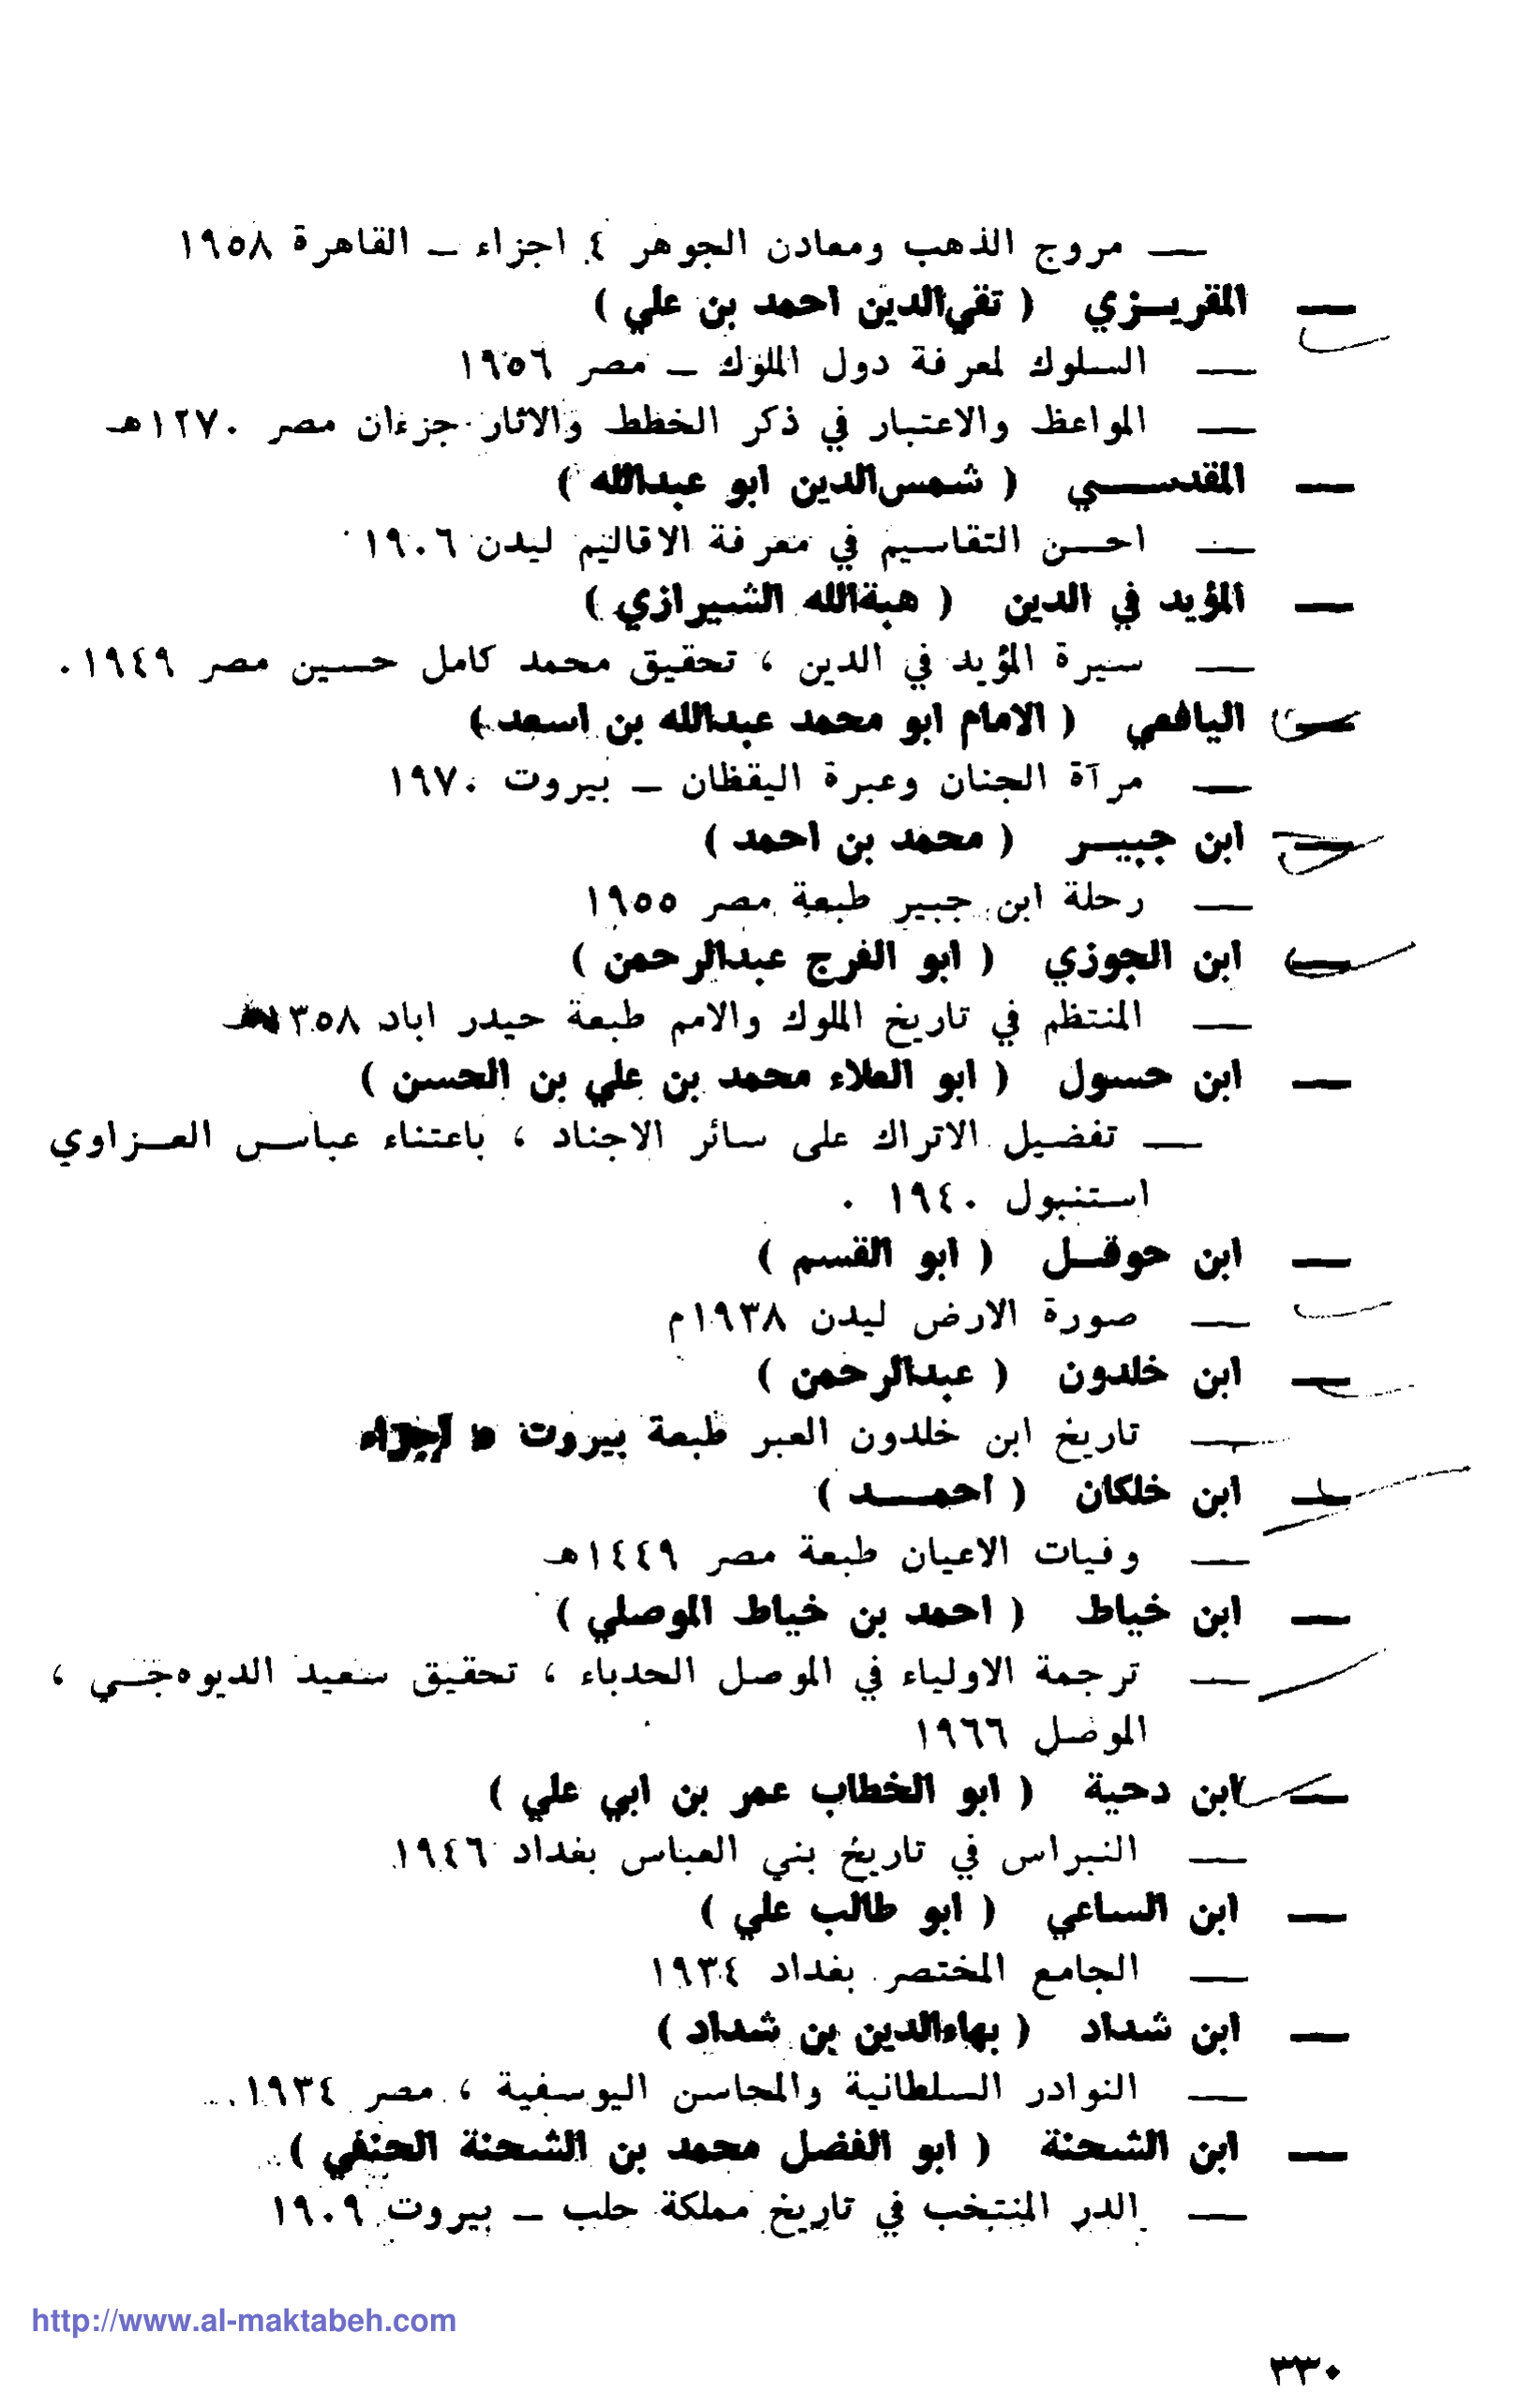 — مروج الذهب ومعادن الجوهر ٤ اجزاء – القاهرة ١٩٥٨
— المقريـزي ( تقي‌الدين احمد بن علي )
— السلوك لمعرفة دول الملوك – مصر ١٩٥٦
— المواعظ والاعتبار في ذكر الخطط والاثار جزءان مصر ١٢٧٠هـ
— المقدســي ( شمس‌الدين ابو عبدالله )
— احسن التقاسيم في معرفة الاقاليم ليدن ١٩٠٦
— المؤيد في الدين ( هبة‌الله الشيرازي )
— سيرة المؤيد في الدين ، تحقيق محمد كامل حسين مصر ١٩٤٩ .
— اليافعي ( الامام ابو محمد عبدالله بن اسعد )
— مرآة الجنان وعبرة اليقظان – بيروت ١٩٧٠
— ابن جبيـر ( محمد بن احمد )
— رحلة ابن جبير طبعة مصر ١٩٥٥
— ابن الجوزي ( ابو الفرج عبدالرحمن )
— المنتظم في تاريخ الملوك والامم طبعة حيدر اباد ١٣٥٨هـ
— ابن حسول ( ابو العلاء محمد بن علي بن الحسن )
— تفضيل الاتراك على سائر الاجناد ، باعتناء عباس العـزاوي
استنبول ١٩٤٠ .
— ابن حوقـل ( ابو القسم )
— صورة الارض ليدن ١٩٣٨م
— ابن خلدون ( عبدالرحمن )
— تاريخ ابن خلدون العبر طبعة بيروت اجزاء
— ابن خلكان ( احمــد )
— وفيات الاعيان طبعة مصر ١٤٤٩هـ
— ابن خياط ( احمد بن خياط الموصلي )
— ترجمة الاولياء في الموصل الحدباء ، تحقيق سعيد الديوه‌جي ،
الموصل ١٩٦٦
— ابن دحية ( ابو الخطاب عمر بن ابي علي )
— النبراس في تاريخ بني العباس بغداد ١٩٤٦
— ابن الساعي ( ابو طالب علي )
— الجامع المختصر بغداد ١٩٣٤
— ابن شداد ( بهاءالدين بن شداد )
— النوادر السلطانية والمحاسن اليوسفية ، مصر ١٩٣٤ .
— ابن الشحنة ( ابو الفضل محمد بن الشحنة الحنفي )
— الدر المنتخب في تاريخ مملكة حلب – بيروت ١٩٠٩
http://www.al-maktabeh.com
٣٣٠